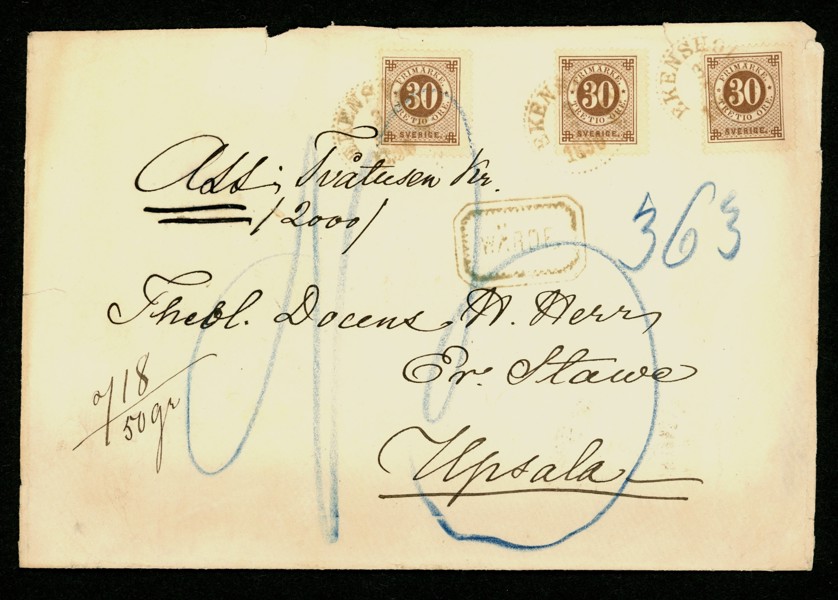 FRIMÄRKE
30
TRETIO ÖRE
SVERIGE.
FRIMÄRKE
30
TRETIO ÖRE
SVERIGE.
FRIMÄRKE
30
TRETIO ÖRE
SVERIGE.
EKENS
EKEN
EKENSH
Ass; Tvåtusen Kr.
/2000/
WÄRDE
363
Theol. Docens, H. Herr
Er. Stawe
718
50 gr
Upsala